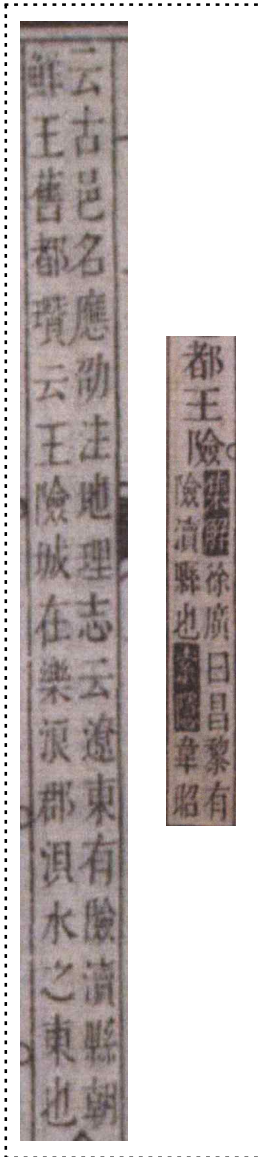 都王險
集解徐廣曰昌黎有
險瀆縣也索隱韋昭
云古邑名應劭注地理志云遼東有險瀆縣朝
鮮王舊都瓚云王險城在樂浪郡浿水之東也